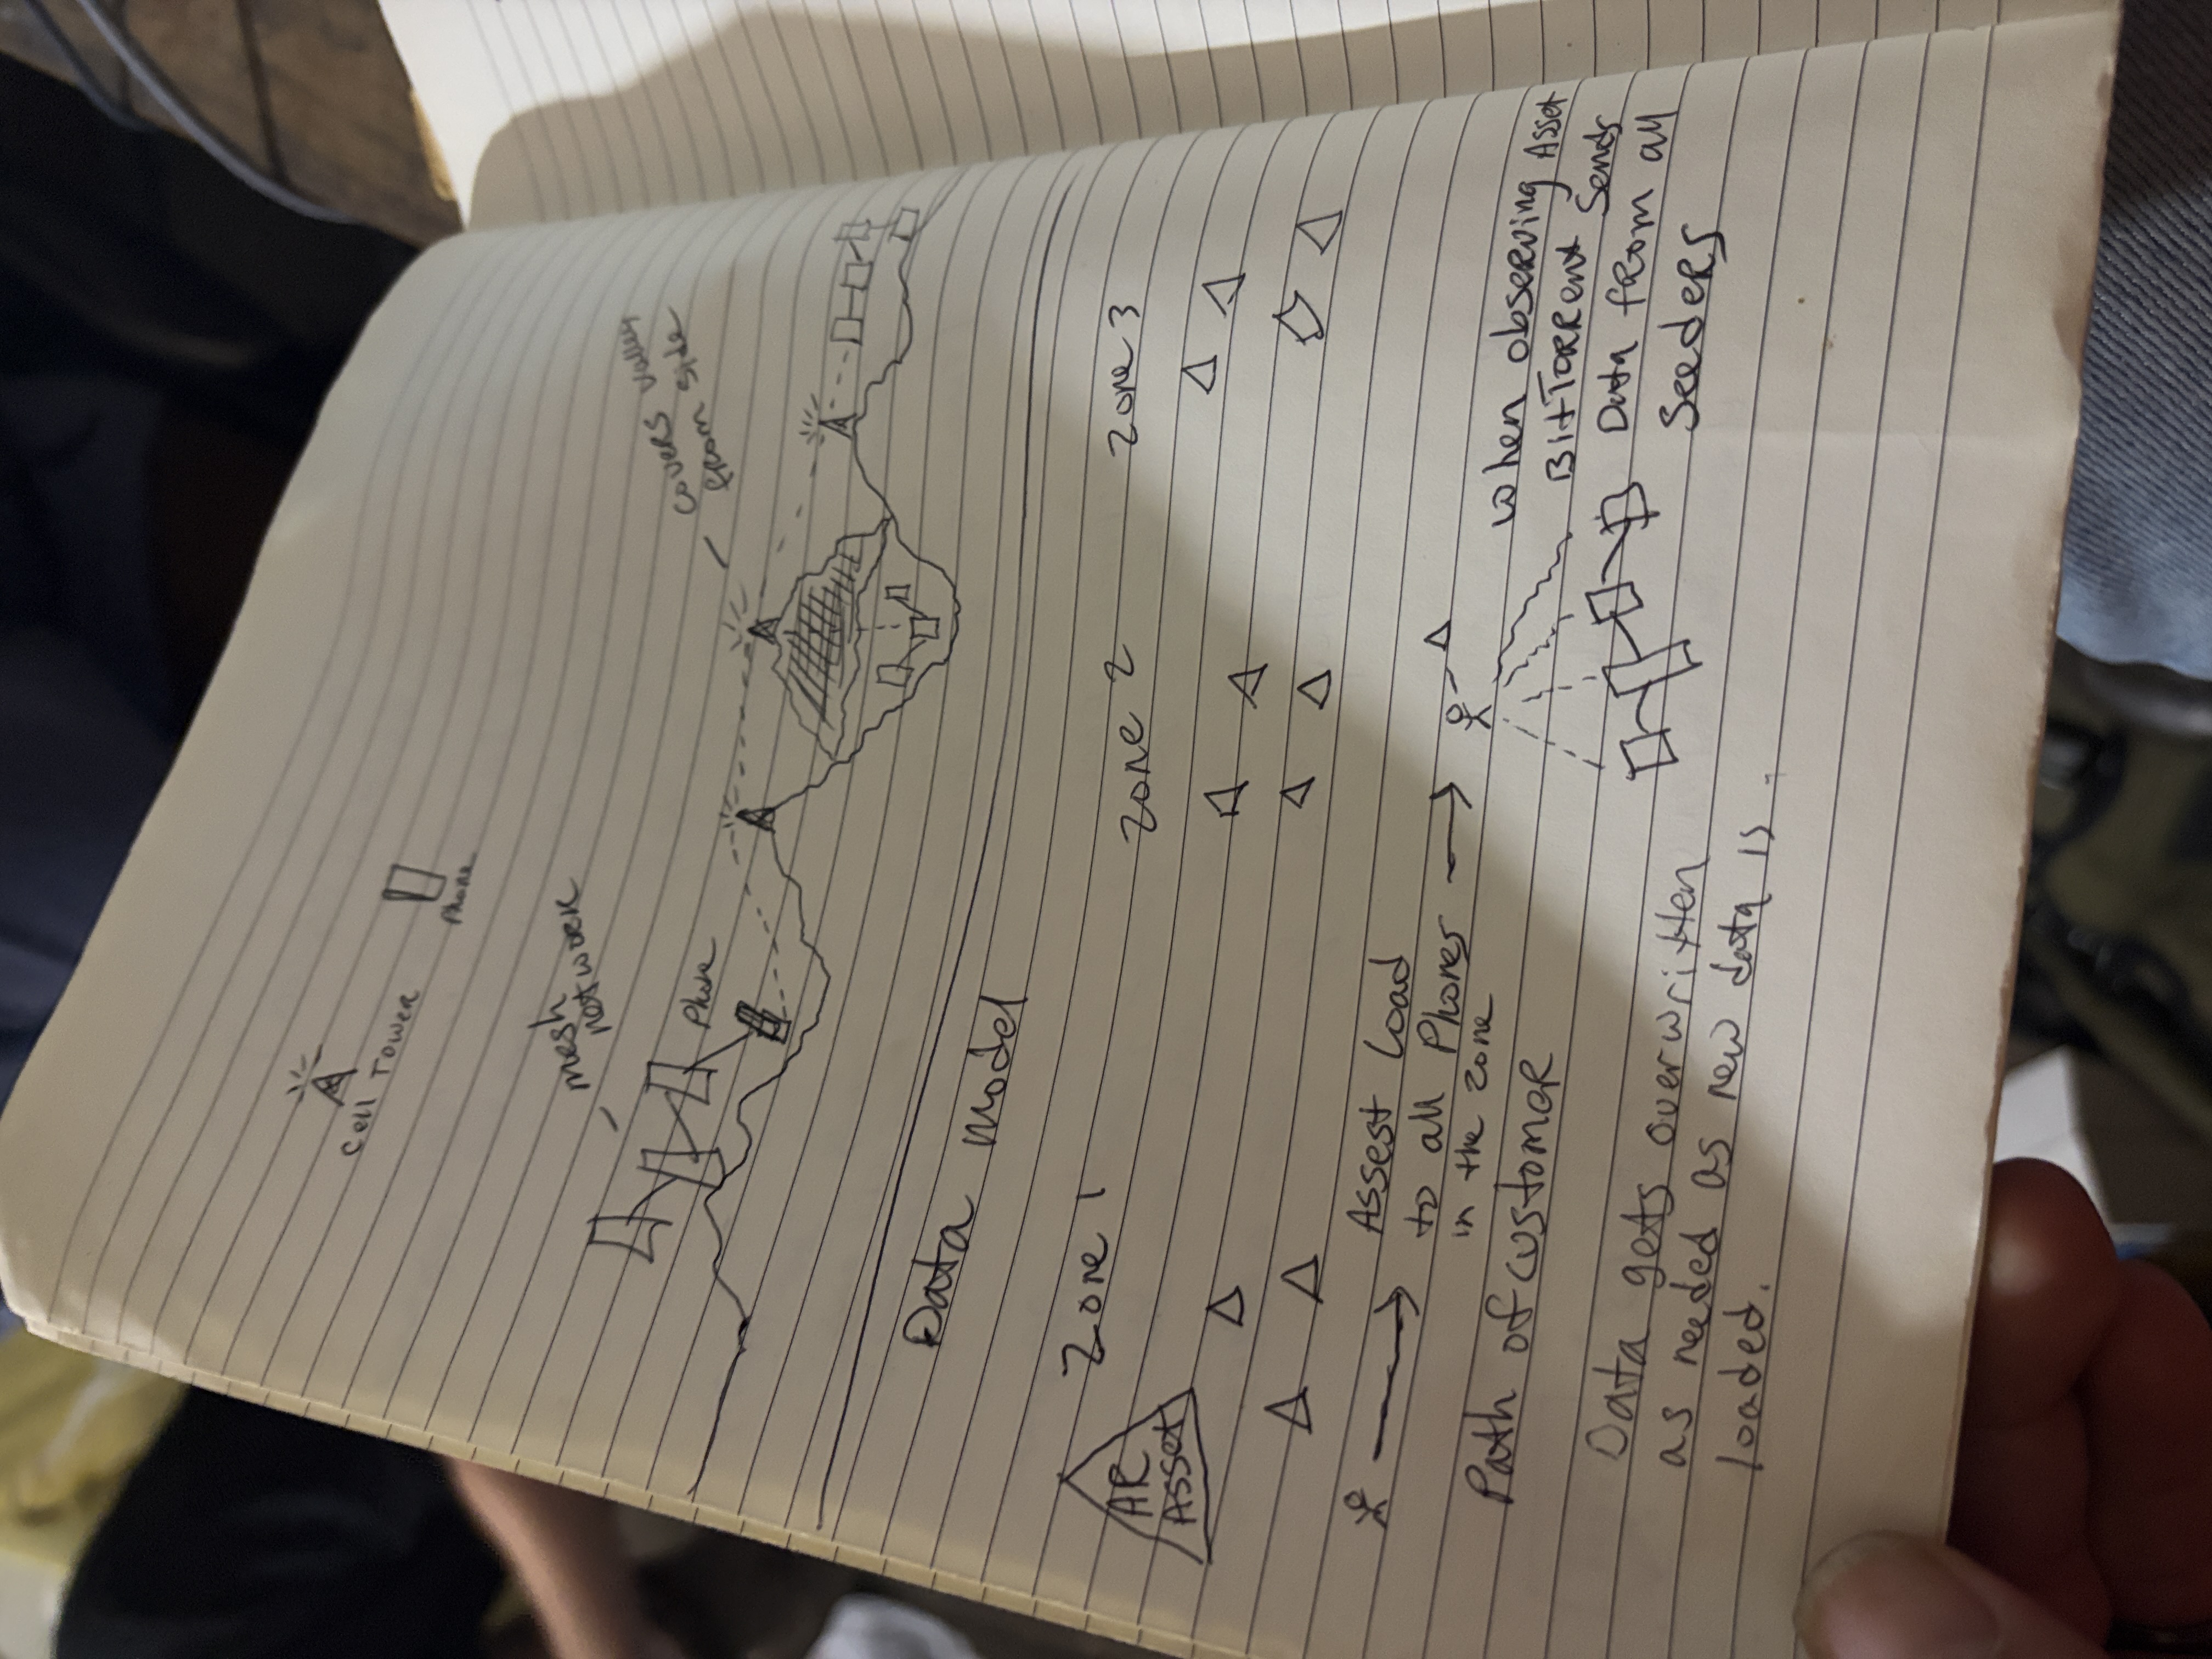 Cell Tower
Phone
mesh
network
Phone
covers vally
from side
Data Model
Zone 1
Zone 2
Zone 3
AR
Asset
Assest Load
to all Phones
in the zone
Path of customer
when observing Asset
BitTorrent Sends
Data from all
Seeders
Data gets overwritten
as needed as new data is
loaded.